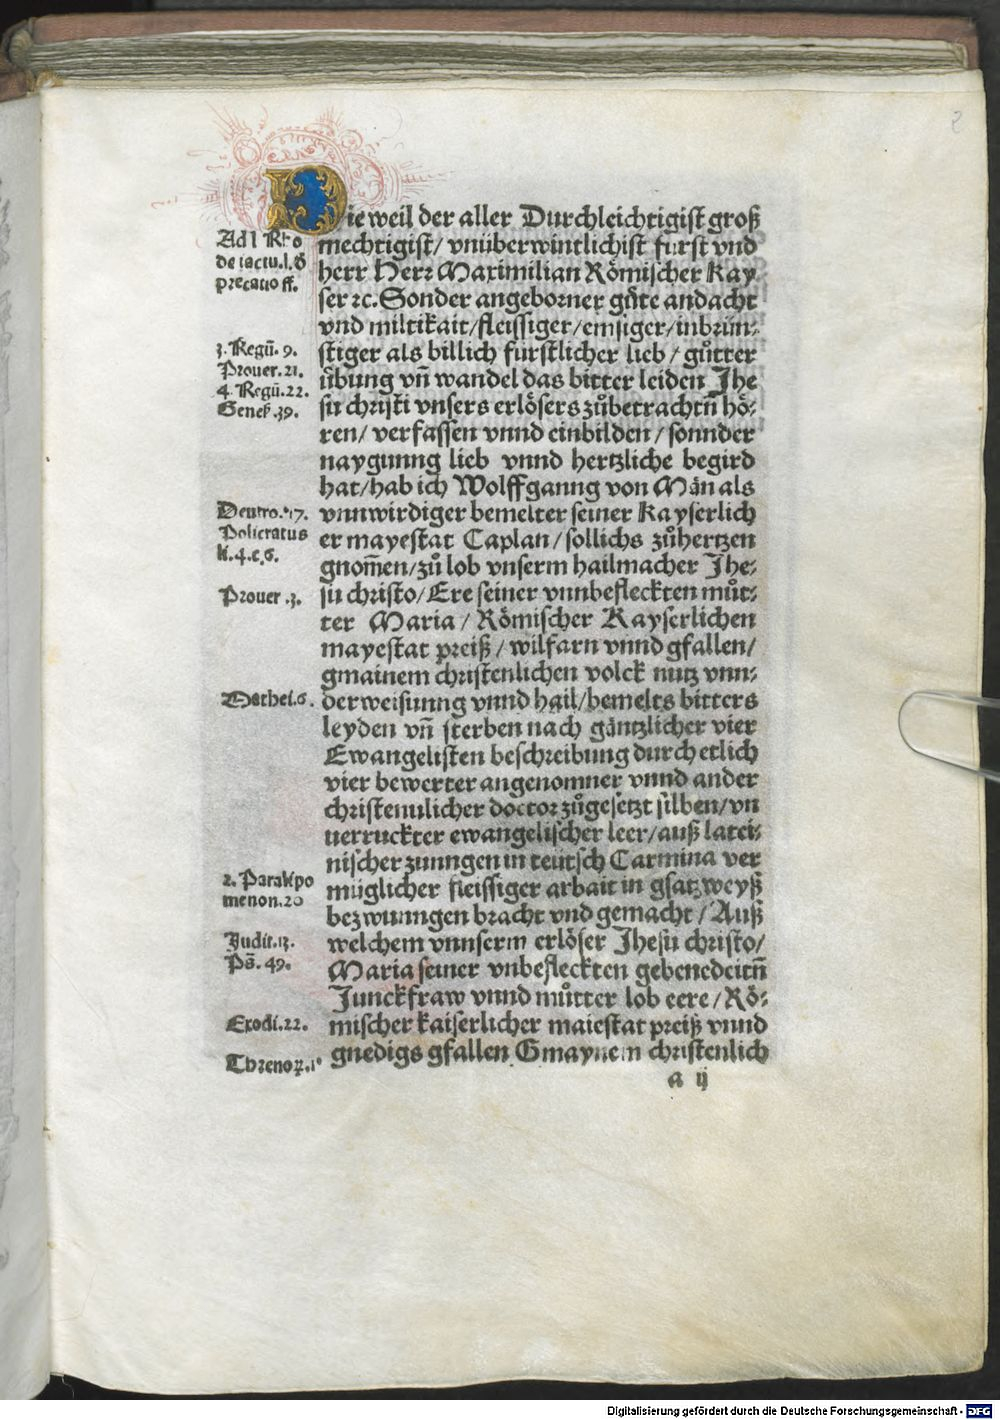 2
Die weil der aller Durchleichtigist groß
mechtigist/ vnüberwintlichist furst vnd
herr Herr Maximilian Römischer Kay
ser ꝛc. Sonder angeborner guͤte andacht
vnd miltikait/fleissiger/emsiger/inbrün⸗
stiger als billich furstlicher lieb / guͦtter
uͤbung vñ wandel das bitter leiden Jhe
su christi vnsers erlösers zuͦbetrachtñ hö⸗
ren/ verfassen vnnd einbilden / sonnder
naygunng lieb vnnd hertzliche begird
hat/hab ich Wolffganng von Män als
vnnwirdiger bemelter seiner Kayserlich
er mayestat Caplan/ sollichs zuͦhertzen
gnom̄en/zuͦ lob vnserm hailmacher Jhe⸗
su christo/Ere seiner vnnbefleckten muͦt⸗
ter Maria / Römischer Kayserlichen
mayestat preiß / wilfarn vnnd gfallen/
gmainem christenlichen volck nutz vnn⸗
derweisunng vnnd hail/bemelts bitters
leyden vñ sterben nach gäntzlicher vier
Ewangelisten beschreibung durch etlich
vier bewerter angenomner vnnd ander
christennlicher doctor zuͦgesetzt silben/vn
uerruckter ewangelischer leer/auß latei⸗
nischer zunngen in teutsch Carmina ver
müglicher fleissiger arbait in gsatz weyß
bezwunngen bracht vnd gemacht / Auß
welchem vnnserm erlöser Jhesu christo/
Maria seiner vnbefleckten gebenedeitñ
Junckfraw vnnd muͦtter lob eere / Rö⸗
mischer kaiserlicher maiestat preiß vnnd
gnedigs gfallen Gmaynem christenlich
a ij
Ad l Rho
de iactu. l. δ
precatio ff.
3. Regū. 9.
Prouer. 21.
4. Regū. 22.
Genes. 39.
Deutro. 17.
Policratus
li. 4. c. 6.
Prouer. 3.
Mathei. 6.
2. Paralipo
menon. 20
Judit. 13.
Ps̄. 49.
Exodi. 22.
Threnoꝝ. 1
Digitalisierung gefördert durch die Deutsche Forschungsgemeinschaft - DFG